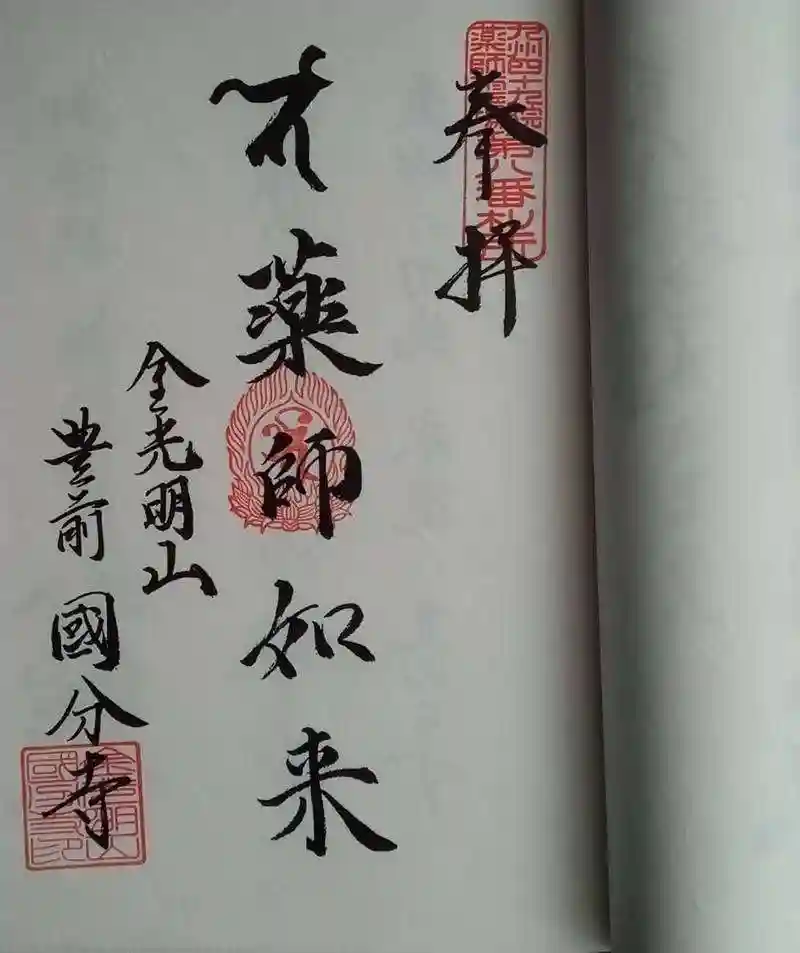 九州四十九院
薬師霊場第八番札所
奉拝
薬師如来
金光明山
豊前國分寺